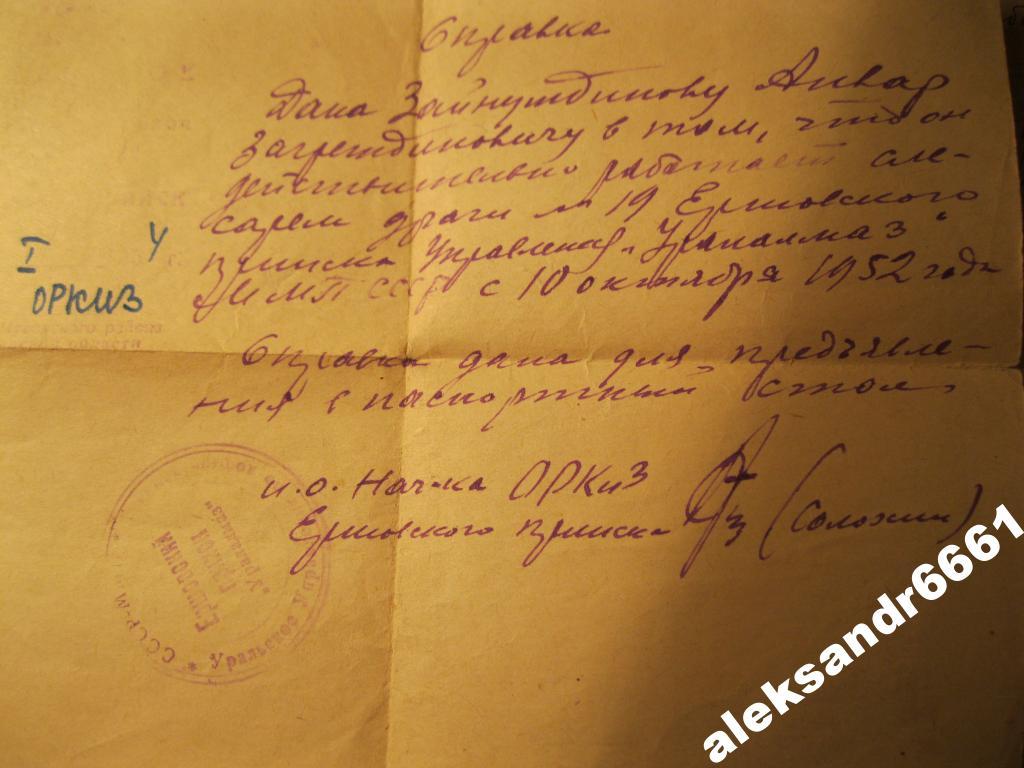 Справка
Дана Зайнутдинову Анвар
Загретдиновичу в том, что он
действительно работает сле-
сарем драги № 19 Ермовского
прииска Управления „Уралалмаз"
МВМП СССР с 10 октября 1952 года
Справка дана для предъявле-
ния в паспортный стол.
I У
ОРКиЗ
и.о. Нач-ка ОРКиЗ
Ермовского прииска (Соложин)
СССР-М
* Уральское
прииск
"Уралалмаз"
aleksandr6661